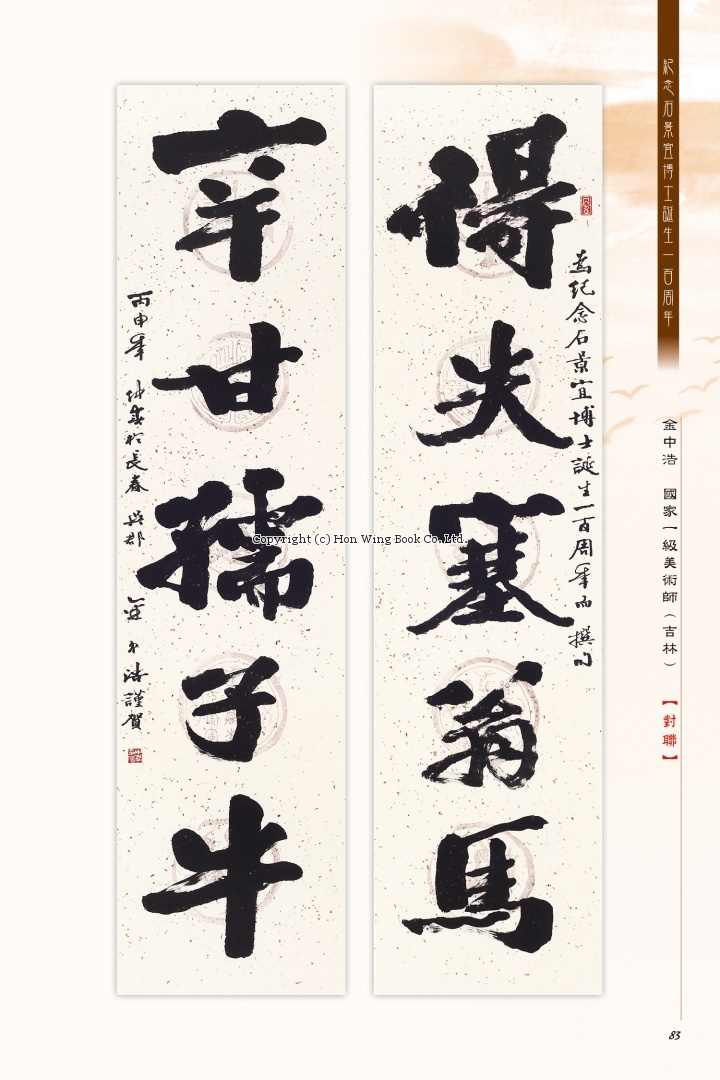 紀念石景宜博士誕生一百周年
金中浩 國家一級美術師(吉林)
【對聯】
為紀念石景宜博士誕生一百周年而撰句
得失塞翁馬
辛甘孺子牛
丙申年 仲春於長春 吳郡 金中浩謹賀
Copyright (c) Hon Wing Book Co.Ltd.
83